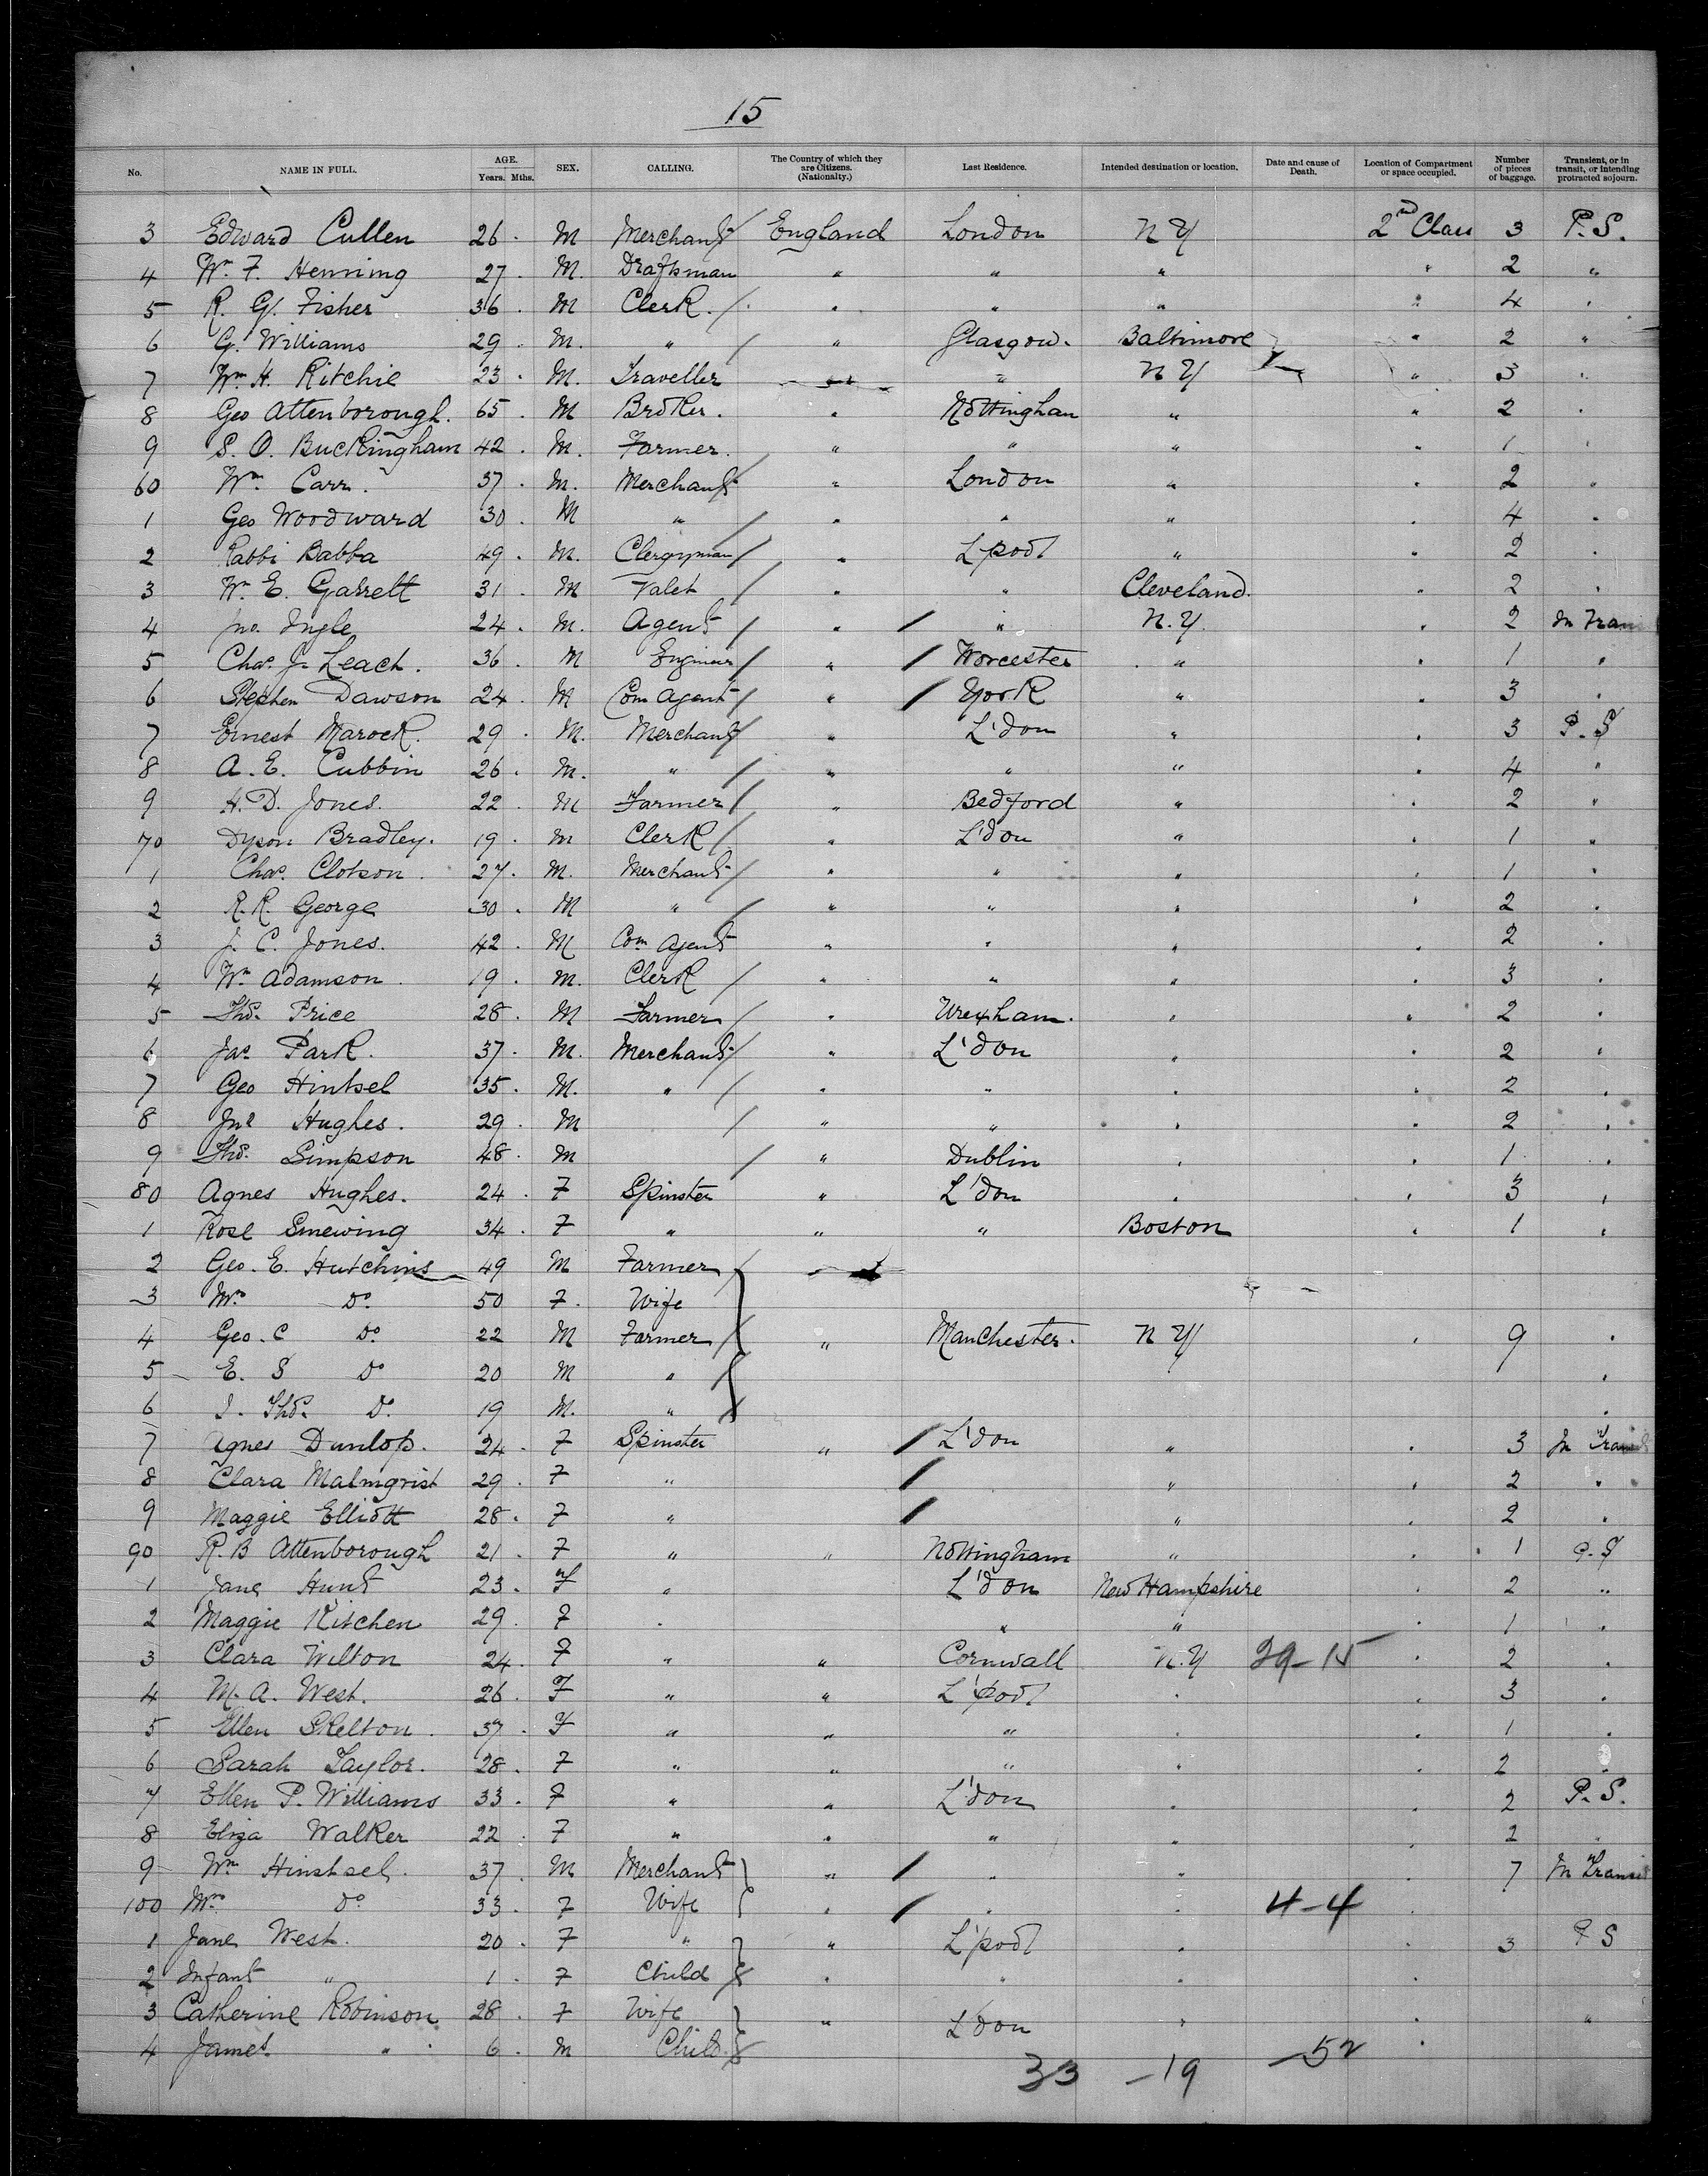 15
No. NAME IN FULL. AGE. Years. Mths. SEX. CALLING. The Country of which they are Citizens. (Nationalty.) Last Residence. Intended destination or location. Date and cause of Death. Location of Compartment or space occupied. Number of pieces of baggage. Transient, or in transit, or intending protracted sojourn.
3 Edward Cullen 26 M Merchant England London N Y 2nd Class 3 P. S.
4 Wm. F. Henning 27 M. Draftsman " " " " 2 "
5 R. G. Fisher 36 M Clerk. " " " " 4 "
6 G. Williams 29 M. " " Glasgow. Baltimore " 2 "
7 Wm. H. Ritchie 23 M. Traveller " " N Y " 3 "
8 Geo Attenborough. 65 M Broker. " Nottingham " " 2 "
9 S. O. Buckingham 42 M. Farmer. " " " " 1 "
60 Wm. Carr. 37 M. Merchant " London " " 2 "
1 Geo Woodward 30 M " " " " " 4 "
2 Rabbi Babba 49 M. Clergyman " L'pool " " 2 "
3 Wm. E. Garrett 31 M Valet " " Cleveland. " 2 "
4 Jno. Ingle 24 M. Agent " " N. Y. " 2 In Trans
5 Chas. J. Leach. 36 M Engineer " Worcester " " 1 "
6 Stephen Dawson 24 M Com Agent " York " " 3 "
7 Ernest Marock. 29 M. Merchant " L'don " " 3 P. S
8 A. E. Cubbin 26 M. " " " " " 4 "
9 H. D. Jones. 22 M Farmer " Bedford " " 2 "
70 Dyson Bradley. 19 M Clerk " L'don " " 1 "
1 Chas. Clotson. 27 M. Merchant " " " " 1 "
2 R. R. George 30 M " " " " " 2 "
3 J. C. Jones. 42 M Com Agent " " " " 2 "
4 Wm Adamson. 19 M. Clerk " " " " 3 "
5 Thos. Price 28 M Farmer " Wrexham. " " 2 "
6 Jas. Park. 37 M. Merchant " L'don " " 2 "
7 Geo Hintsel 35 M. " " " " " 2 "
8 Jno Hughes. 29 M " " " " 2 "
9 Thos. Simpson 48 M " Dublin " " 1 "
80 Agnes Hughes. 24 F Spinster " L'don " " 3 "
1 Rose Smewing 34 F " " " Boston " 1 "
2 Geo. E. Hutchins 49 M Farmer "
3 Mrs. Do. 50 F. Wife
4 Geo. C Do. 22 M Farmer " Manchester. N Y " 9 "
5 E. S Do 20 M " "
6 J. Thos. Do. 19 M. " "
7 Agnes Dunlop. 24 F Spinster " L'don " " 3 In Transit
8 Clara Malmqrist 29 F " " " 2 "
9 Maggie Elliott 28 F " " " 2 "
90 R. B Attenborough 21 F " " Nottingham " " 1 P. S
1 Jane Hunt 23 F " L'don New Hampshire " 2 "
2 Maggie Kitchen 29 F " " " " 1 "
3 Clara Wilton 24 F " " Cornwall N. Y 29-15 " 2 "
4 M. A. West. 26 F " " L'pool " " 3 "
5 Ellen Skelton. 37 F " " " " " 1 "
6 Sarah Taylor. 28 F " " " " " 2 "
7 Ellen P. Williams 33 F " " L'don " " 2 P. S.
8 Eliza Walker 22 F " " " " " 2 "
9 Wm Hinstsel. 37 M Merchant " " " 7 In Transit
100 Mrs Do 33 F Wife " " " 4-4 "
1 Jane West. 20 F " " L'pool " " 3 P S
2 Infant " 1 F Child " " " "
3 Catherine Robinson 28 F Wife " L'don " " "
4 James " 6 M Child "
33 -19 -52